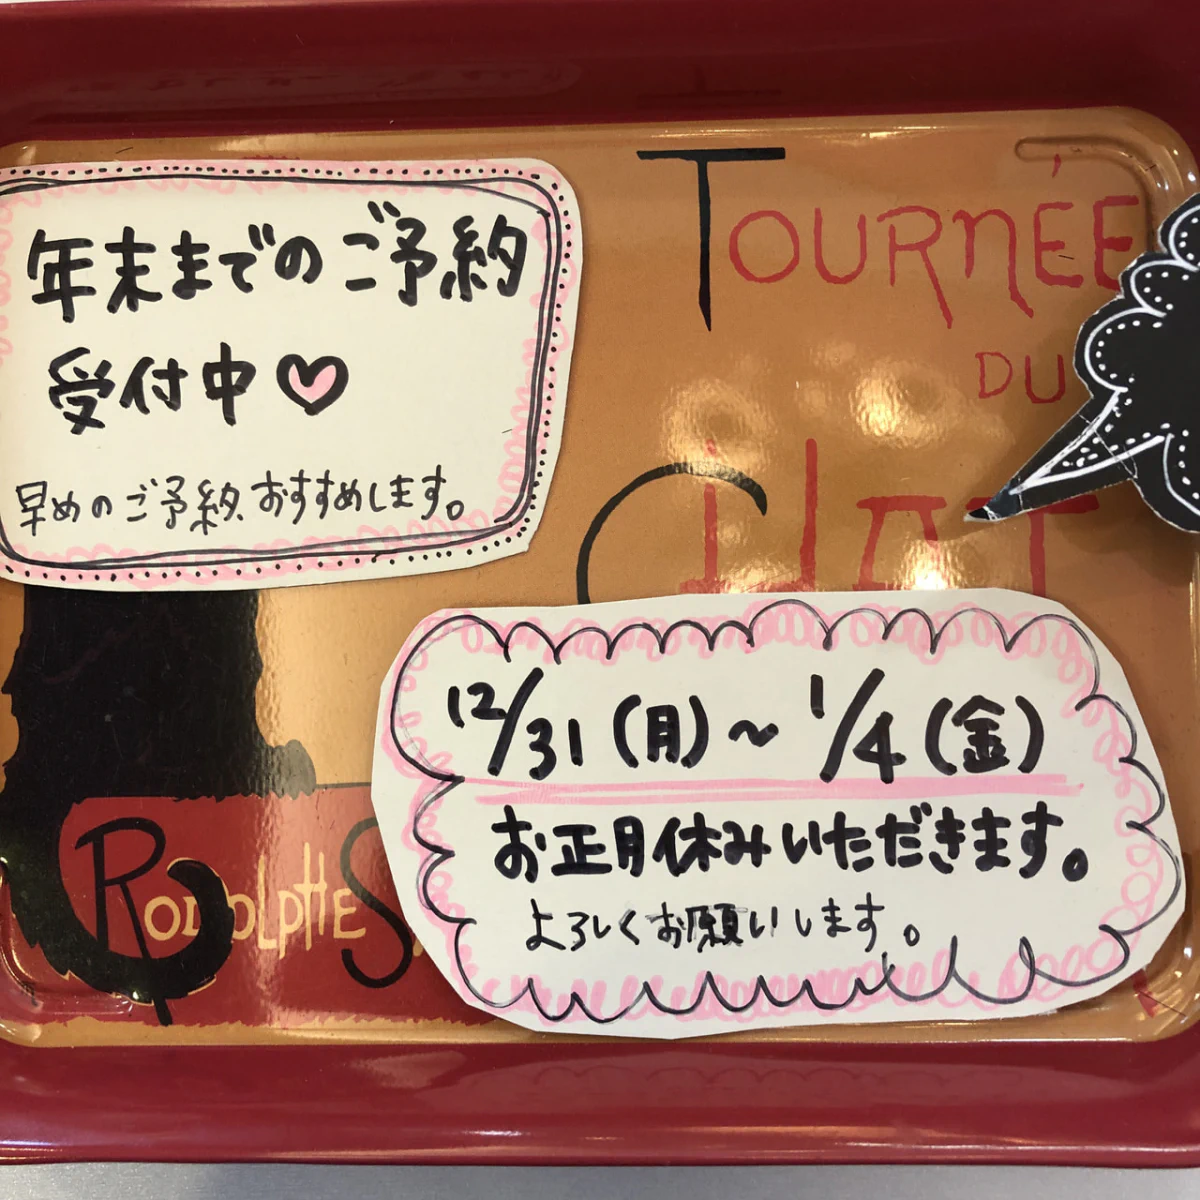 年末までのご予約
受付中♡
早めのご予約、おすすめします。
TOURNÉE
DU
CHAT
12/31(月)~1/4(金)
お正月休みいただきます。
よろしくお願いします。
RODOLPHE